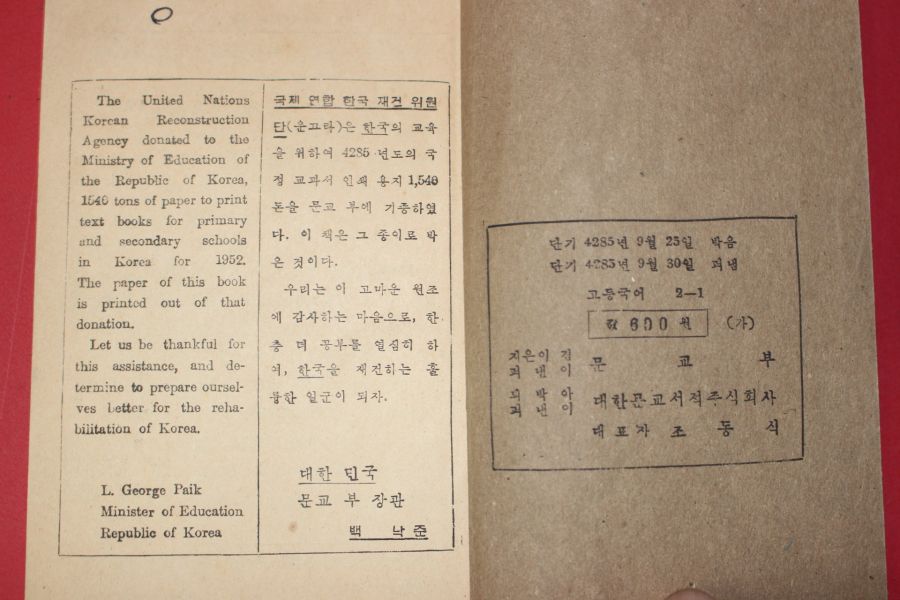 The United Nations
Korean Reconstruction
Agency donated to the
Ministry of Education of
the Republic of Korea,
1540 tons of paper to print
text books for primary
and secondary schools
in Korea for 1952.
The paper of this book
is printed out of that
donation.
Let us be thankful for
this assistance, and de-
termine to prepare oursel-
ves better for the reha-
bilitation of Korea.
L. George Paik
Minister of Education
Republic of Korea
국제 연합 한국 재건 위원
단(운끄라)은 한국의 교육
을 위하여 4285 년도의 국
정 교과서 인쇄 용지 1,540
톤을 문교 부에 기증하였
다. 이 책은 그 종이로 박
은 것이다.
우리는 이 고마운 원조
에 감사하는 마음으로, 한
층 더 공부를 열심히 하
여, 한국을 재건하는 훌
륭한 일군이 되자.
대한 민국
문교 부 장관
백 낙 준
단기 4285년 9월 25일 박음
단기 4285년 9월 30일 펴냄
고등국어 2—1
값 600 원 (가)
지은이 겸
펴낸이 문 교 부
박아
펴낸이 대한문교서적주식회사
대표자 조 동 식